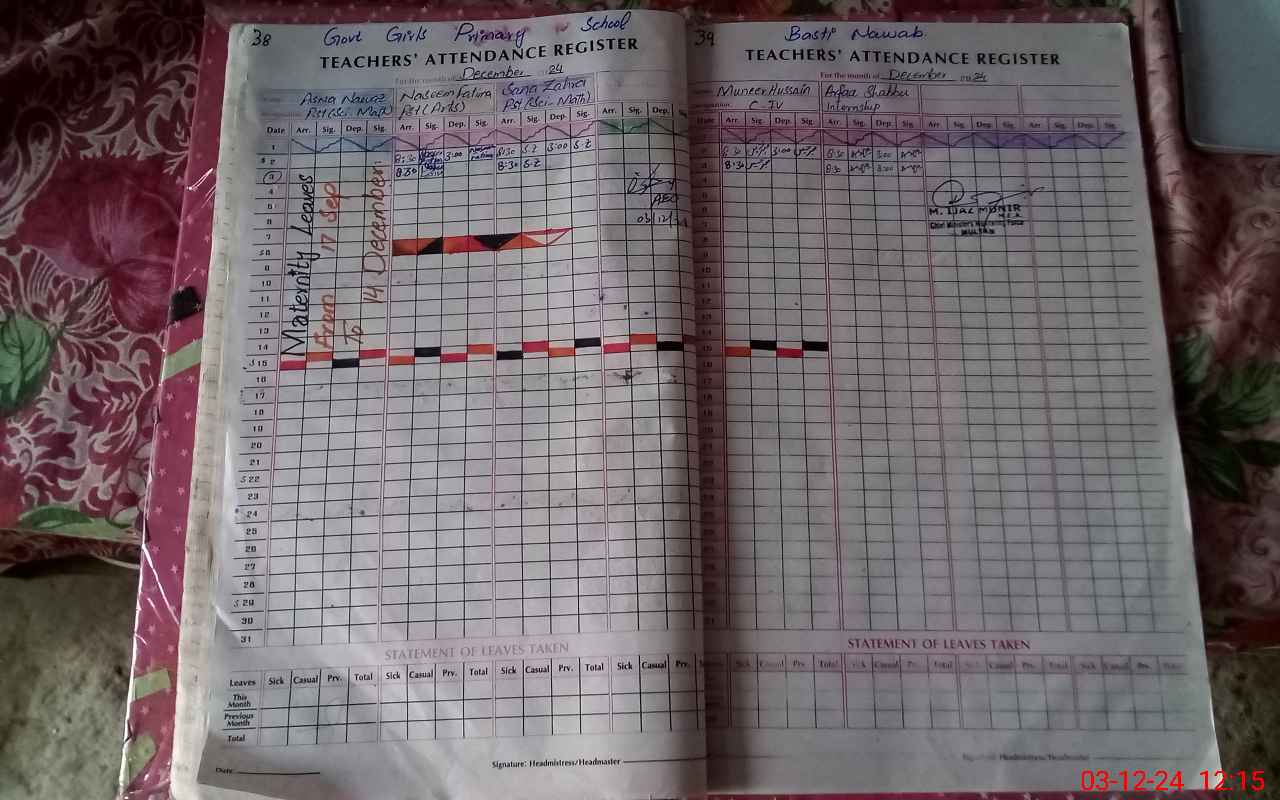 38 Govt Girls Primary School
TEACHERS' ATTENDANCE REGISTER
For the month of December 2024
Asma Nawaz
Pst (Sci-Math)
Naseem Fatima
Pst (Arts)
Sana Zahra
Pst (Sci-Math)
Date Arr. Sig. Dep. Sig. Arr. Sig. Dep. Sig. Arr. Sig. Dep. Sig. Arr. Sig. Dep. Sig.
1
2 8:30 3:00 8:30 S.Z 3:00 S.Z
3 8:30 8:30 S.Z
4
5
6
7
S 8
9
10
11
12
13
14
S 15
16
17
18
19
20
21
S 22
23
24
25
26
27
28
S 29
30
31
Maternity Leaves
From 17 Sep
To 14 December
AEO
03/12/24
STATEMENT OF LEAVES TAKEN
Leaves Sick Casual Prv. Total Sick Casual Prv. Total Sick Casual Prv. Total Sick Casual Prv.
This Month
Previous Month
Total
Date:
Signature: Headmistress/Headmaster
39 Basti Nawab
TEACHERS' ATTENDANCE REGISTER
For the month of December 2024
Muneer Hussain
C-IV
Arfaa Shabbu
Internship
Arr. Sig. Dep. Sig. Arr. Sig. Dep. Sig.
8:30 3:00 8:30 3:00
8:30 8:30 3:00
M. IJAZ MUNIR
M.E.A.
Chief Minister's Monitoring Force
MULTAN
STATEMENT OF LEAVES TAKEN
Sick Casual Prv. Total Sick Casual Prv. Total Sick Casual Prv. Total Sick Casual Prv. Total
Signature: Headmistress/Headmaster
03-12-24 12:15